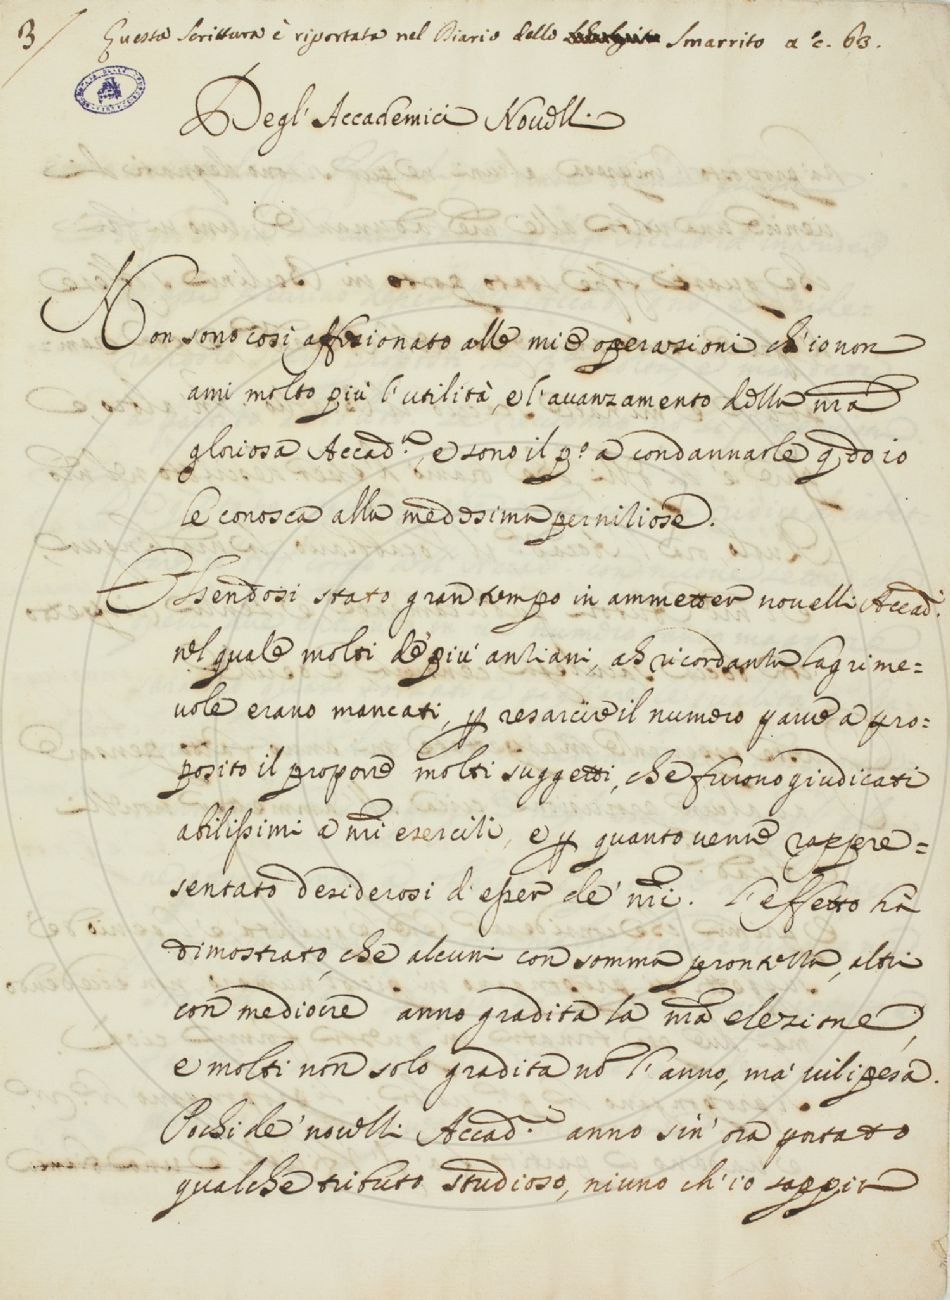 3/ Questa Scrittura è riportata nel Diario dello Smarrito a c. 63.
Degl' Accademici Novelli.
Non sono così affezionato alle mie operazioni ch'io non
ami molto più l'utilità, e l'avanzamento della nra
gloriosa Accad.a, e sono il p.o a condannarle qdo io
le conosca alla medesima perniziose.
Essendosi stato gran tempo in ammetter novelli Accad.i
nel quale molti de' più anziani, ah ricordanza lagrime=
vole erano mancati, p resarcire il numero parve a pro=
posito il proporre molti suggetti, che furono giudicati
abilissimi a nri esercizi, e p quanto venne rappre=
sentato desiderosi d'esser de' nri. L'effetto ha
dimostrato, che alcuni con somma prontezza, altri
con mediocre anno gradita la nra elezione,
e molti non solo gradita nō l'anno, ma vilipesa.
Pochi de' novelli Accad.i anno sin' ora portato
qualche tributo studioso, niuno ch'io sappia